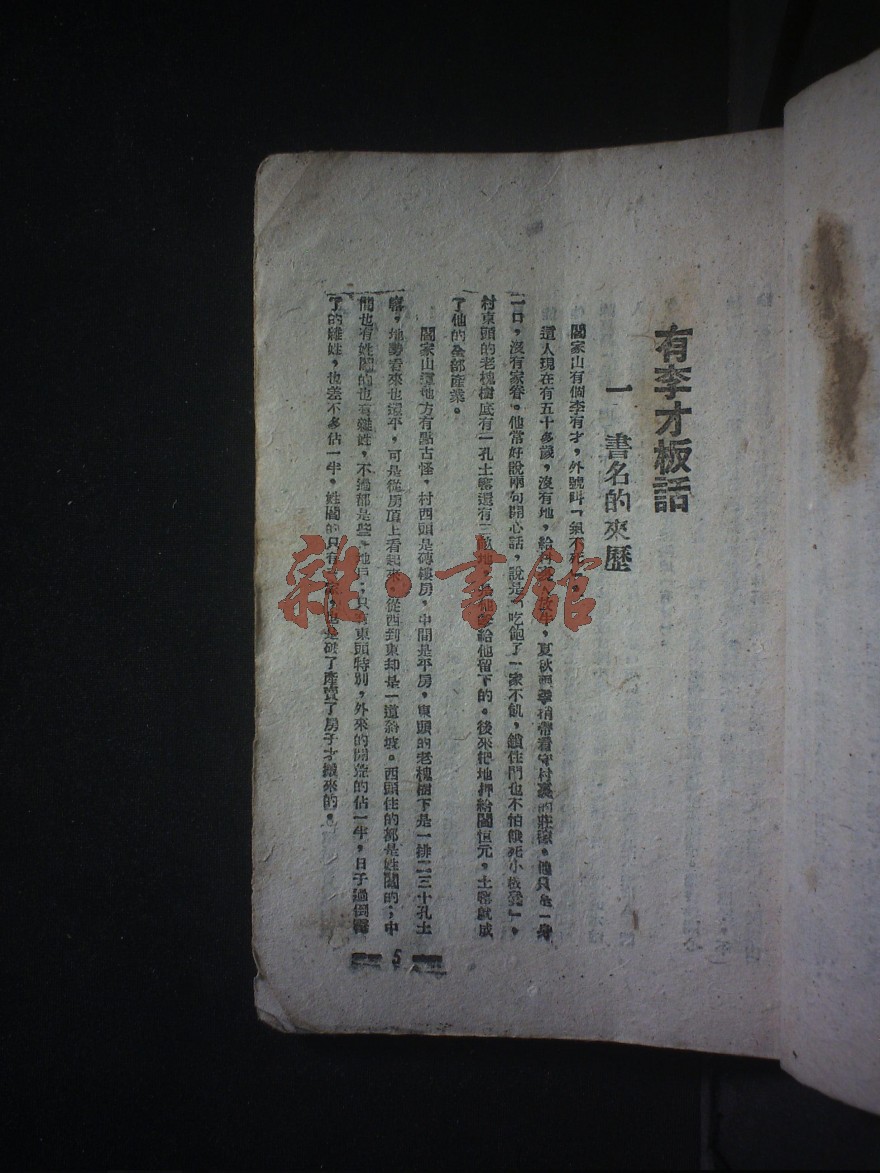 有李才板話
一 書名的來歷
閻家山有個李有才，外號叫「氣不死」。
這人現在有五十多歲，沒有地，給村，夏秋兩季捎帶看守村裏的莊稼。他只是一身
一口，沒有家眷。他常好說兩句開心話，說是「吃飽了一家不飢，鎖住門也不怕餓死小板凳」。
村東頭的老槐樹底有一孔土窰還有三畝地，給他留下的。後來把地押給閻恒元，土窰就成
了他的全部產業。
閻家山這地方有點古怪，村西頭是磚樓房，中間是平房，東頭的老槐樹下是一排二三十孔土
窰。地勢看來也還平，可是從房頂上看起來，從西到東却是一道斜坡。西頭住的都是姓閻的；中
間也有姓閻的也有雜姓，不過都是些地戶；只有東頭特別，外來的開荒的佔一半，日子過倒霉
了的雜姓，也差不多佔一半，姓閻的只有破了產賣了房子才搬來的。
5
雜·書館